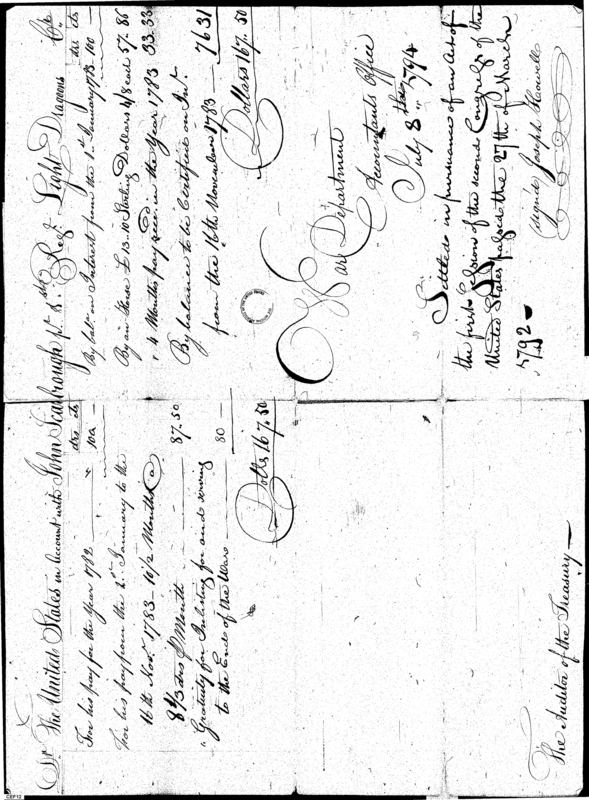 Dr. The United States in Account with John Scarbrough pt. 1st Regt. Light Dragoons Cr.
drs cts
For his pay for the Year 1782 100
for his pay from the 1st January to the
16th Novr. 1783 - 10 1/2 Months @
8 1/3 drs Month 87.50
Gratuity for Inlisting for and serving
to the End of the War 80
Dolls 167.50
drs cts
By on Interest from the 1st January 1783 100
By an Horse £ 13.10 Sterling Dollars 4/8 each 57.86
4 Months pay in the Year 1783 33.33
By balance to be Certified on Int.
from the 16th November 1783 7631
Dollars 167.50
War Department
Accountants Office
July 8th 1794
Settled in pursuance of an Act of
the first Session of the second Congress of the
United States passed the 27th of March
1792
signed Joseph Howell
The Auditor of the Treasury
CEF12